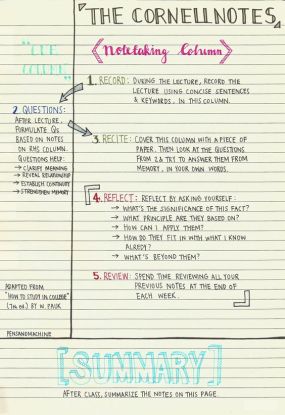 THE CORNELLNOTES
"CUE COLUMN"
Notetaking Column
1. RECORD: DURING THE LECTURE, RECORD THE
LECTURE USING CONCISE SENTENCES
& KEYWORDS, IN THIS COLUMN.
2. QUESTIONS:
AFTER LECTURE,
FORMULATE QS
BASED ON NOTES
ON RHS COLUMN.
QUESTIONS HELP:
→ CLARIFY MEANING
→ REVEAL RELATIONSHIP
→ ESTABLISH CONTINUITY
→ STRENGTHEN MEMORY
3. RECITE: COVER THIS COLUMN WITH A PIECE OF
PAPER. THEN LOOK AT THE QUESTIONS
FROM 2 & TRY TO ANSWER THEM FROM
MEMORY, IN YOUR OWN WORDS.
4. REFLECT: REFLECT BY ASKING YOURSELF:
→ WHAT'S THE SIGNIFICANCE OF THIS FACT?
→ WHAT PRINCIPLE ARE THEY BASED ON?
→ HOW CAN I APPLY THEM?
→ HOW DO THEY FIT IN WITH WHAT I KNOW
ALREDY?
→ WHAT'S BEYOND THEM?
5. REVIEW: SPEND TIME REVIEWING ALL YOUR
PREVIOUS NOTES AT THE END OF
EACH WEEK.
ADAPTED FROM
"HOW TO STUDY IN COLLEGE"
(7TH ED.) BY W. PAUK
PENSANDMACHINE
[SUMMARY]
AFTER CLASS, SUMMARIZE THE NOTES ON THIS PAGE.